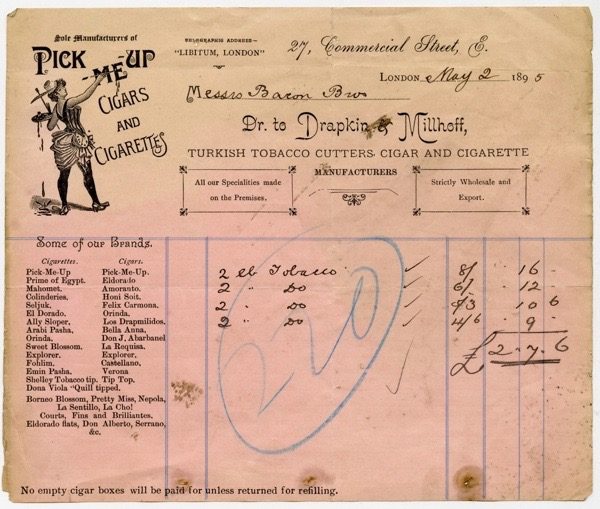 Sole Manufacturers of
PICK-ME-UP
CIGARS
AND
CIGARETTES
TELEGRAPHIC ADDRESS—
"LIBITUM, LONDON"
27, Commercial Street, E.
LONDON May 2 1895
Messrs Bacon Bros
Dr. to Drapkin & Millhoff,
TURKISH TOBACCO CUTTERS, CIGAR AND CIGARETTE
MANUFACTURERS
All our Specialities made
on the Premises.
Strictly Wholesale and
Export.
Some of our Brands.
Cigarettes. Cigars.
Pick-Me-Up Pick-Me-Up.
Prime of Egypt. Eldorado
Mahomet. Amoranto.
Colinderies. Honi Soit.
Seljuk. Felix Carmona.
El Dorado. Orinda.
Ally Sloper. Los Drapmilidos.
Arabi Pasha, Bella Anna,
Orinda. Don J. Abarbanel
Sweet Blossom. La Requisa.
Explorer. Explorer,
Foblim. Castellano,
Emin Pasha. Verona
Shelley Tobacco tip. Tip Top,
Dona Viola "Quill tipped.
Borneo Blossom, Pretty Miss, Nepola,
La Sentillo, La Cho!
Courts, Fins and Brilliantes.
Eldorado flats, Don Alberto, Serrano,
&c.
2 lb Tobacco ✓ 8/- 16 -
2 " Do ✓ 6/- 12 -
2 " Do ✓ 5/3 10 6
2 " Do ✓ 4/6 9 -
£2.7.6
220
No empty cigar boxes will be paid for unless returned for refilling.